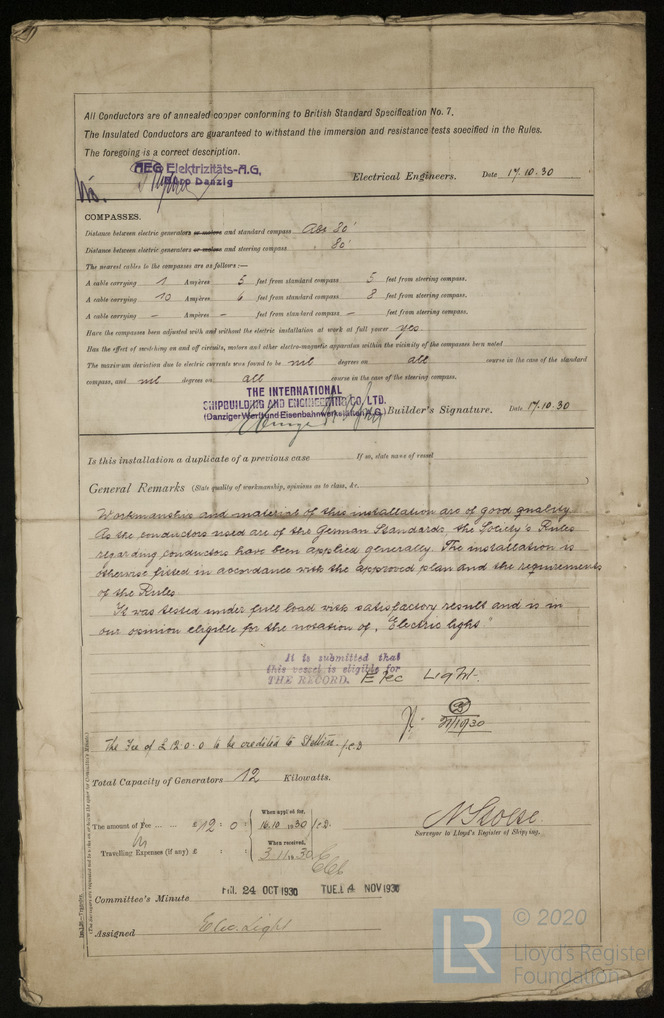 All Conductors are of annealed copper conforming to British Standard Specification No. 7.
The Insulated Conductors are guaranteed to withstand the immersion and resistance tests specified in the Rules.
The foregoing is a correct description.
AEG Elektrizitäts-A.G.
Büro Danzig
Electrical Engineers. Date 17.10.30
COMPASSES.
Distance between electric generators or motors and standard compass Abt 80'
Distance between electric generators or motors and steering compass " 80'
The nearest cables to the compasses are as follows:—
A cable carrying 1 Ampères 5 feet from standard compass 5 feet from steering compass.
A cable carrying 10 Ampères 6 feet from standard compass 8 feet from steering compass.
A cable carrying – Ampères – feet from standard compass – feet from steering compass.
Have the compasses been adjusted with and without the electric installation at work at full power yes
Has the effect of switching on and off circuits, motors and other electro-magnetic apparatus within the vicinity of the compasses been noted
The maximum deviation due to electric currents was found to be nil degrees on all course in the case of the standard
compass, and nil degrees on all course in the case of the steering compass.
THE INTERNATIONAL
SHIPBUILDING AND ENGINEERING CO. LTD.
(Danziger Werft und Eisenbahnwerkstätten A.G.) Builder's Signature. Date 17.10.30
Is this installation a duplicate of a previous case If so, state name of vessel
General Remarks (State quality of workmanship, opinions as to class, &c.)
Workmanship and material of this installation are of good quality.
As the conductors used are of the German Standards the Society's Rules
regarding conductors have been applied generally. The installation is
otherwise fitted in accordance with the approved plan and the requirements
of the Rules
It was tested under full load with satisfactory result and is in
our opinion eligible for the notation of "Electric light"
It is submitted that
this vessel is eligible for
THE RECORD. Elec Light.
21/10/30
The Fee of £ 12.0.0 to be credited to Stettin.
Total Capacity of Generators 12 Kilowatts.
The amount of Fee ... ... £12 : 0 :
When applied for,
16.10 1930
Travelling Expenses (if any) £ : :
When received,
3.11.1930
N Stolse.
Surveyor to Lloyd's Register of Shipping.
Committee's Minute FRI. 24 OCT 1930 TUE. 4 NOV 1930
Assigned Elec. Light
LR
© 2020
Lloyd's Register
Foundation